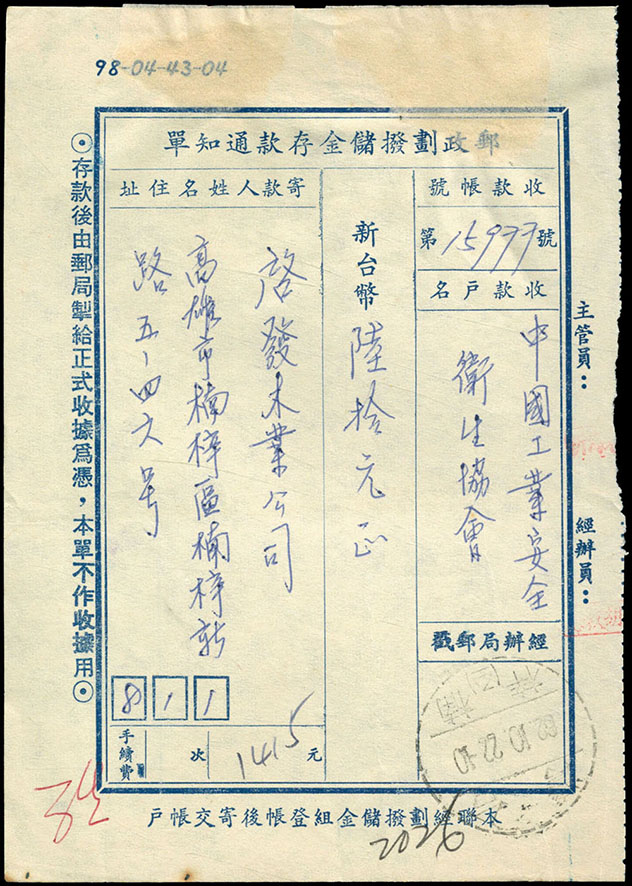 98-04-43-04
郵政劃撥儲金存款通知單
收款帳號
第15977號
收款戶名
中國工業安全
衛生協會
經辦局郵戳
新台幣陸拾元正
寄款人姓名住址
啓發木業公司
高雄市楠梓區楠梓新
路五、四六号
811
手續費
次
1415元
本聯經劃撥儲金組登帳後寄交帳戶
主管員：
經辦員：
⊙存款後由郵局掣給正式收據爲憑，本單不作收據用⊙
2026